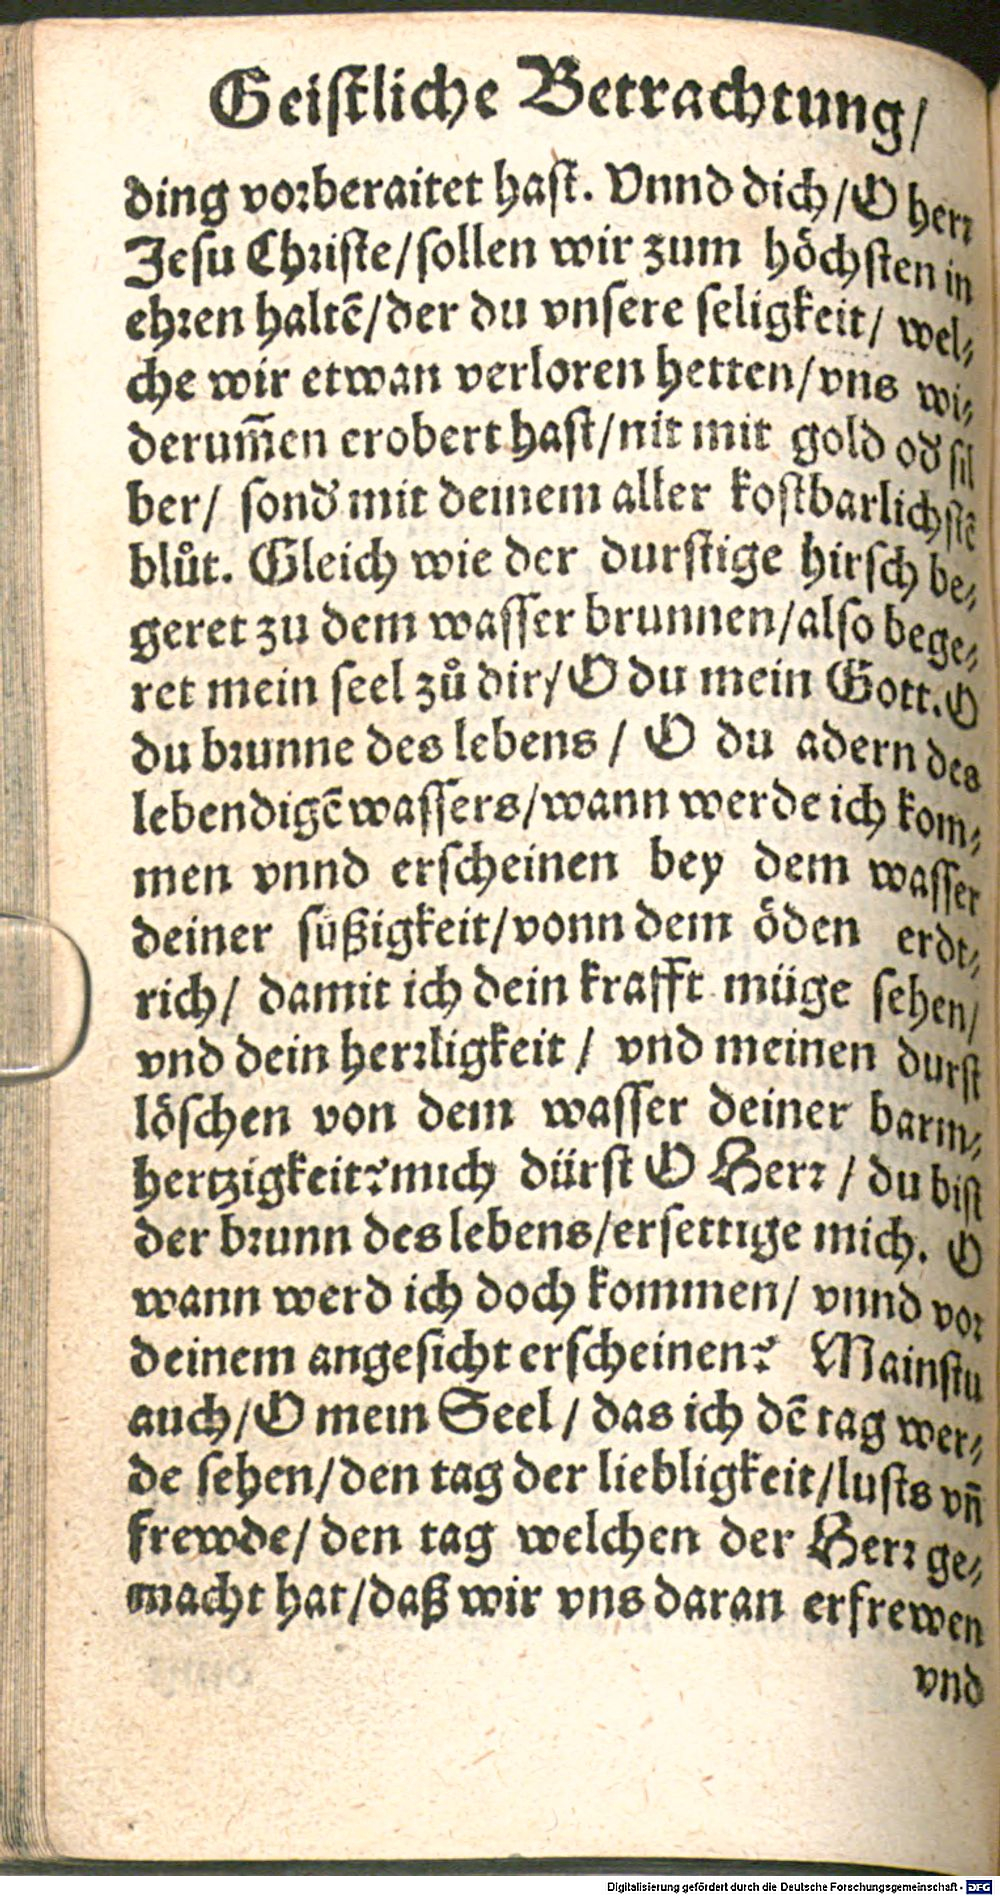 Geistliche Betrachtung/
ding vorberaitet hast. Vnnd dich/O herr
Jesu Christe/sollen wir zum höchsten in
ehren haltē/der du vnsere seligkeit/ wel⸗
che wir etwan verloren hetten/vns wi⸗
derum̄en erobert hast/nit mit gold od̕ sil
ber/ sond̕ mit deinem aller kostbarlichstē
blůt. Gleich wie der durstige hirsch be⸗
geret zu dem wasser brunnen/also bege⸗
ret mein seel zů dir/O du mein Gott. O
du brunne des lebens / O du adern des
lebendigē wassers/wann werde ich kom⸗
men vnnd erscheinen bey dem wasser
deiner süßigkeit/vonn dem öden erdt⸗
rich/ damit ich dein krafft müge sehen/
vnd dein herrligkeit / vnd meinen durst
löschen von dem wasser deiner barm⸗
hertzigkeit? mich dürst O Herr / du bist
der brunn des lebens/ersettige mich. O
wann werd ich doch kommen/ vnnd vor
deinem angesicht erscheinen? Mainstu
auch/O mein Seel / das ich dē tag wer⸗
de sehen/den tag der liebligkeit/lusts vn̄
frewde/ den tag welchen der Herr ge⸗
macht hat/daß wir vns daran erfrewen
vnd
Digitalisierung gefördert durch die Deutsche Forschungsgemeinschaft - DFG